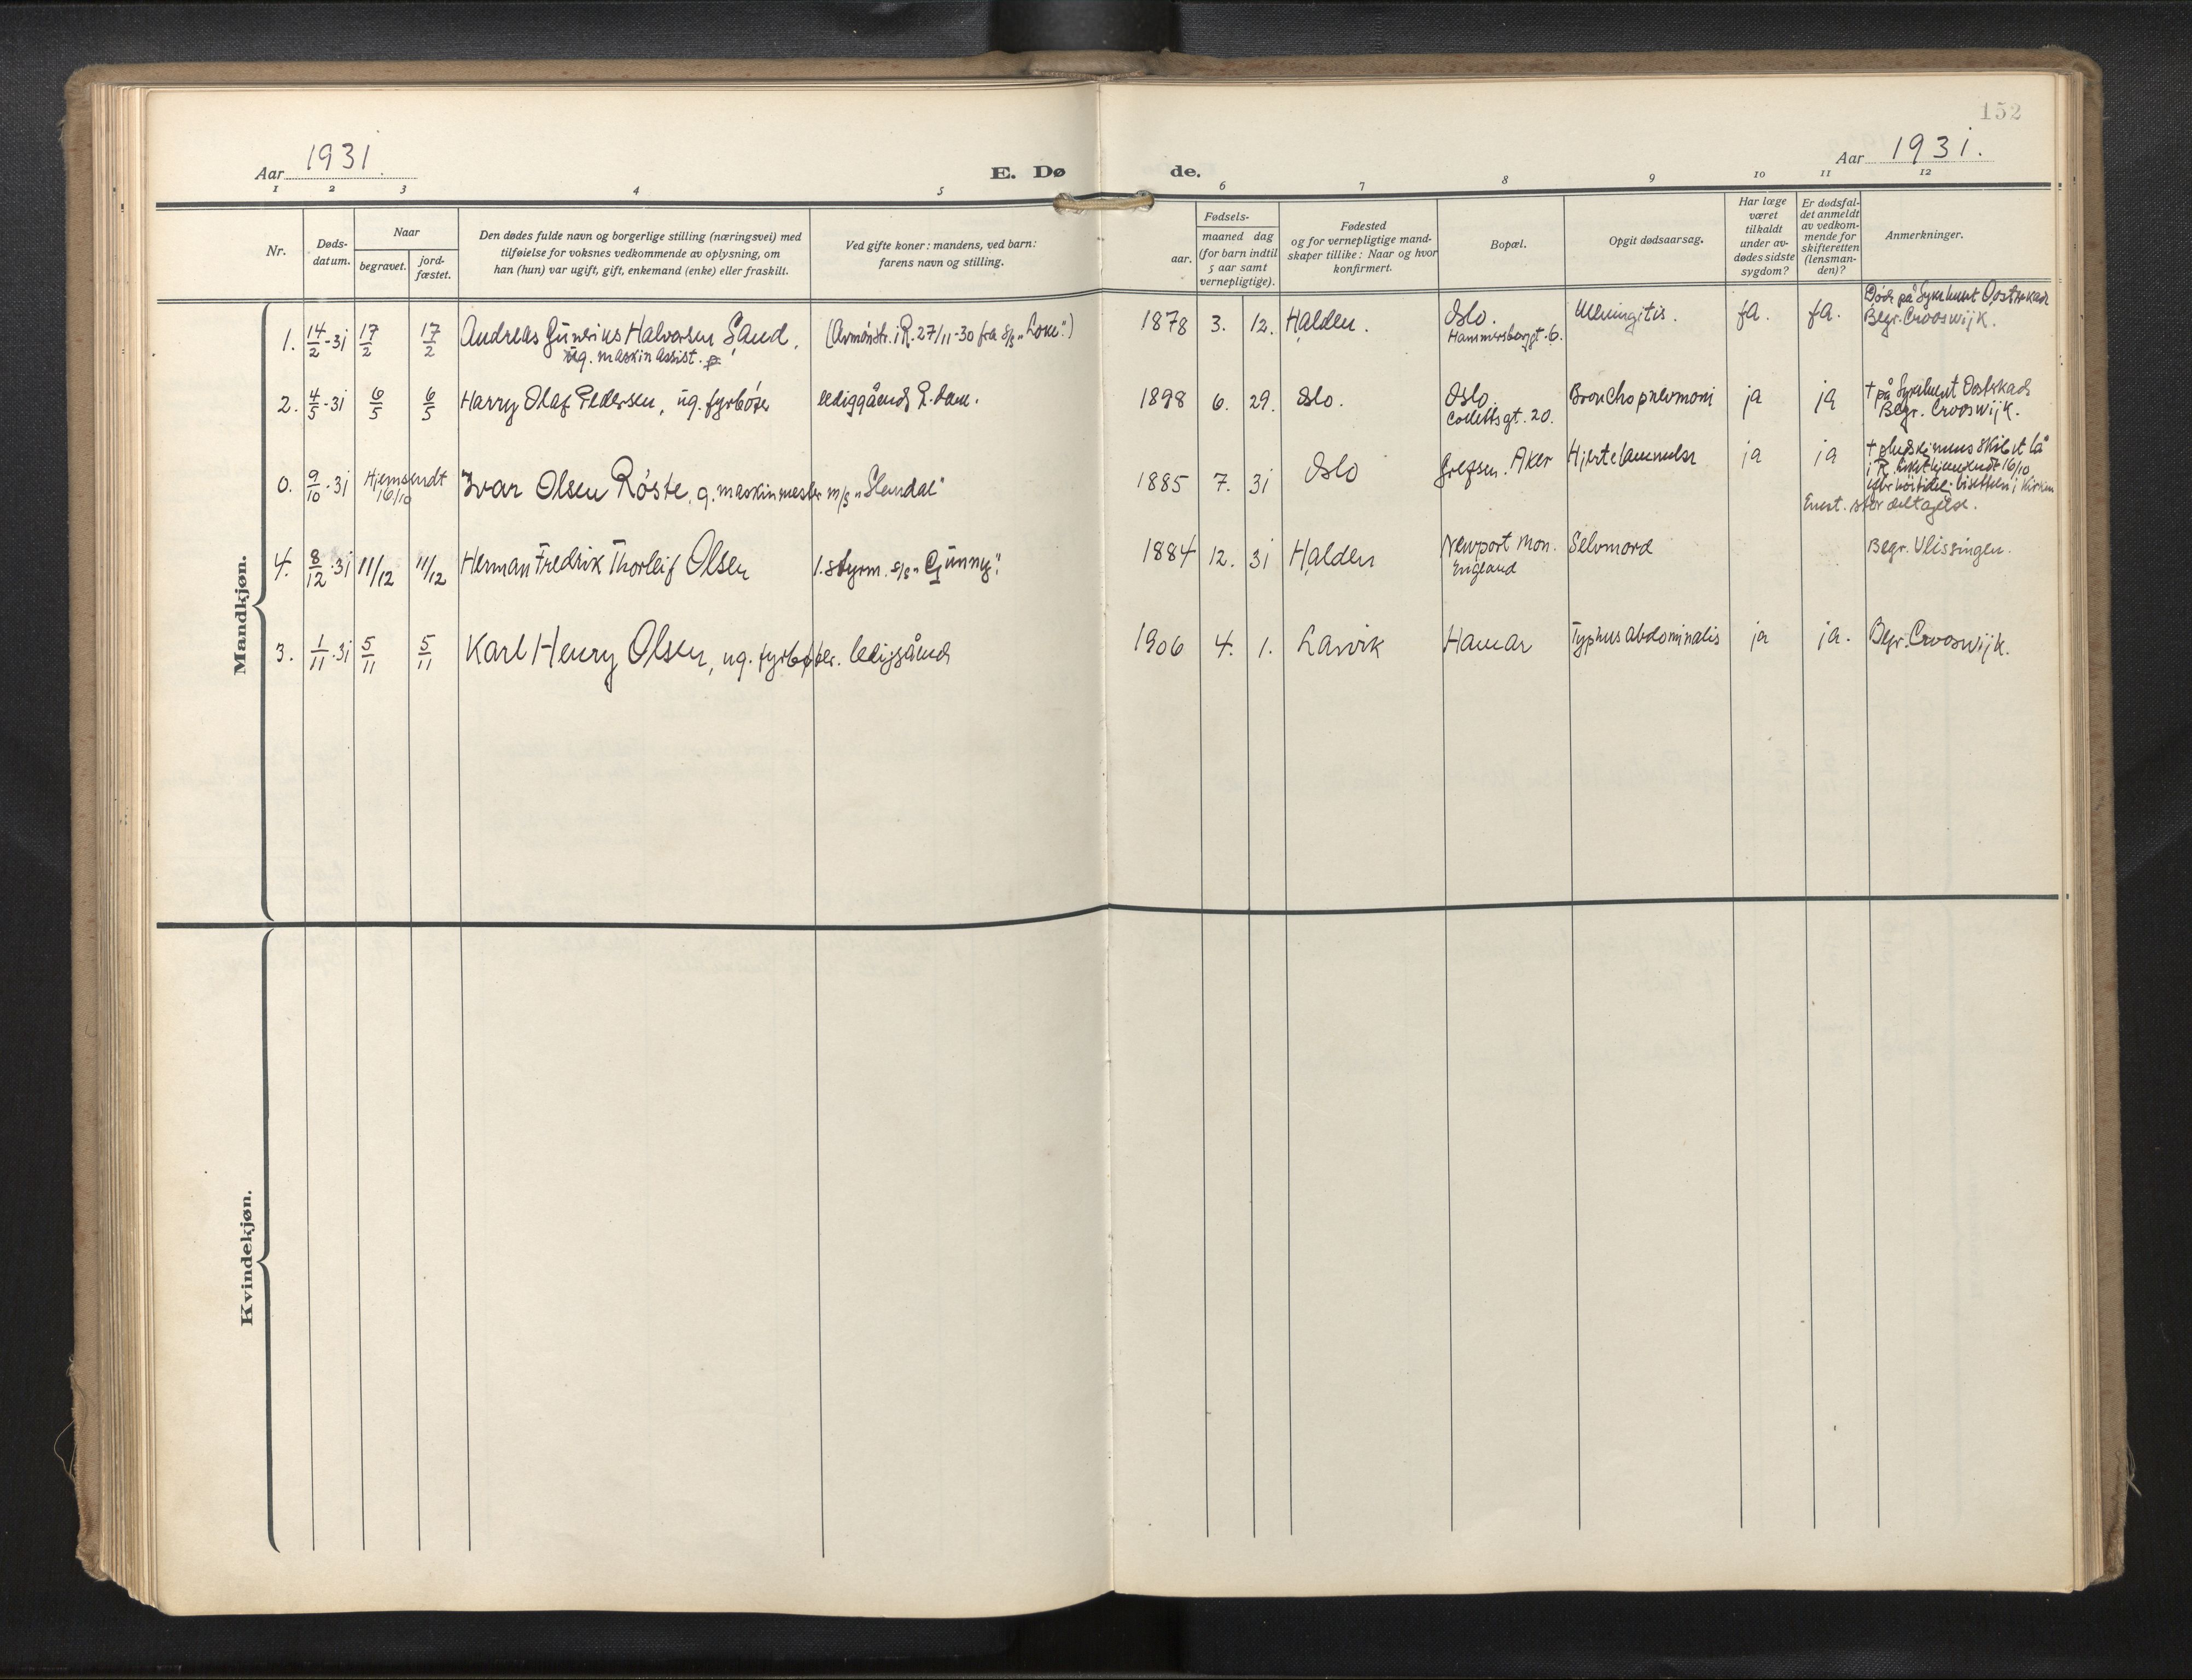 152
Aar 1931.
E. Dø
de.
Aar 1931.
1 2 3 4 5 6 7 8 9 10 11 12
Nr.
Døds-
datum.
Naar
begravet.
jord-
fæstet.
Den dødes fulde navn og borgerlige stilling (næringsvei) med
tilføielse for voksnes vedkommende av oplysning, om
han (hun) var ugift, gift, enkemand (enke) eller fraskilt.
Ved gifte koner: mandens, ved barn:
farens navn og stilling.
Fødsels-
aar.
maaned dag
(for barn indtil
5 aar samt
vernepligtige).
Fødested
og for vernepligtige mand-
skaper tillike: Naar og hvor
konfirmert.
Bopæl.
Opgit dødsaarsag.
Har læge
været
tilkaldt
under av-
dødes sidste
sygdom?
Er dødsfal-
det anmeldt
av vedkom-
mende for
skifteretten
(lensman-
den)?
Anmerkninger.
Mandkjøn.
1. 14/2-31 17/2 17/2 Andreas Halvorsen Sand, (Avmønstr. i R. 27/11-30 fra S/S "Lom") 1878 3. 12. Halden. Oslo. Meningitis. ja. ja. Død på Sykehuset
ug. maskinassist. Hammersborggt. 6. Begr. Crooswijk.
2. 4/5-31 6/5 6/5 Harry Olaf Pedersen, ug. fyrbøter lediggående R.dam. 1898 6. 29. Oslo. Oslo. Bronchopnevmoni ja ja † på Sykehuset
Collettsgt. 20. Begr. Crooswijk.
0. 9/10-31 Hjemsendt 16/10 Ivar Olsen Røste, g. maskinmester m/s "Slemdal" 1885 7. 31 Oslo Grefsen. Aker Hjertelammelse ja ja † mens skibet lå
i R. Liket hjemsendt 16/10
efter høitidel. bisettelse i kirken
stor deltagelse.
4. 8/12-31 11/12 11/12 Herman Fredrik Thorleif Olsen 1. styrm. s/s "Gunny". 1884 12. 31 Halden Newport Mon. Selvmord Begr. Vlissingen.
England
3. 1/11-31 5/11 5/11 Karl Henry Olsen, ug. fyrbøter. lediggående 1906 4. 1. Larvik Hamar Typhus abdominalis ja ja. Begr. Crooswijk.
Kvindekjøn.